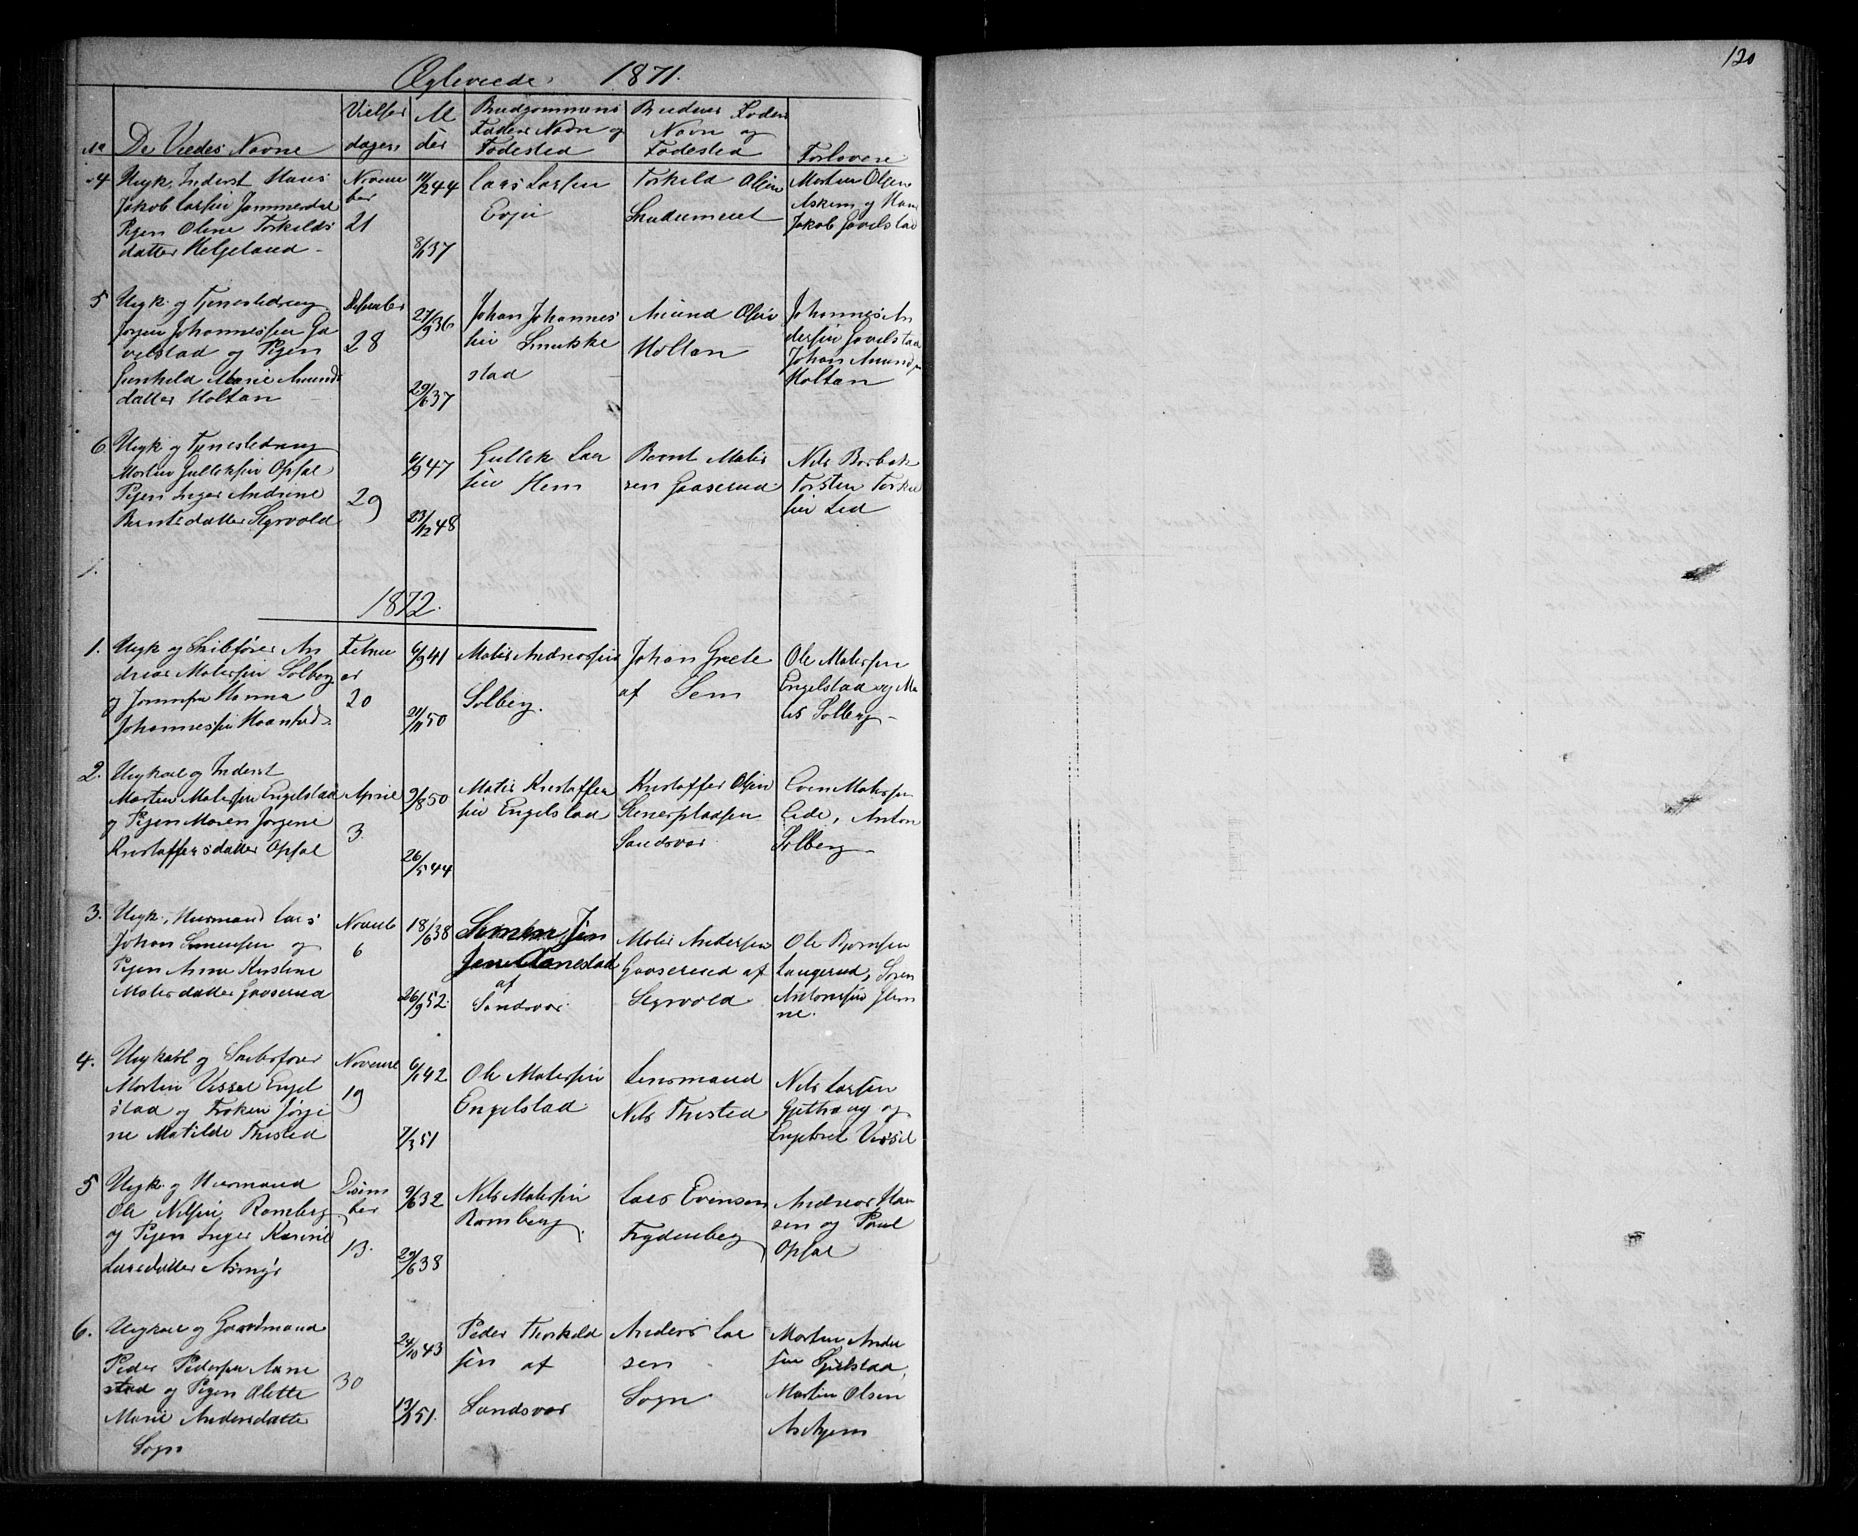 120
Ægteviede 1871.
No De Viedes Navne
Vielses dagen
Al der
Brudgommens Faders Navn og Fødested
Brudens Faders Navn og Fødested
Forlovere
4 Ungk. Inderst Hans
Jakob Larsen Jammerdal
Pigen Oline Torkilds
datter Helgeland
November
21
44
8/1 37
Lars Larsen
Evju
Torkild Olsen
Martin Olsen
Askem og Hans
Jakob Gavelstad
5 Ungk. og Tjenestedreng
Jørgen Johannessen Ga
velstad og Pigen
Gunhild Marie Amunds
datter Holtan
28
27/9 36
29/6 37
Johan Johannes
sen Smukke
stad
Amund Olsen
Holtan
Johannes An
dersen Gavelstad
Johan Amundsen
Holtan
6 Ungk. og Tjenestedreng
Martin Gulleksen Opsal
Pigen Inger Andrine
Berntsdatter Sygvold
29
6/9 47
23/12 48
Gullek Lar
sen Hem
Bernt Mathis
sen Gaaserud
Nils Borbek
Torsten Torkil
sen Lid
1872.
1. Ungk. og Skibsfører An
dreas Matisen Solberg
og Jomfru Hanna
Johannesen
Februar
20
6/9 41
21/11 50
Matis Andreassen
Solberg.
Johan Grete
af Sem
Ole Matisen
Engelstad og Ma
tis Solberg
2. Ungkarl og Inderst
Martin Matisen Engelstad
og Pigen Maren Jørgine
Kristoffersdatter Opsal
April
3.
9/8 50
26/5 44
Matis Kristoffer
sen Engelstad
Kristoffer Olsen
Sandsvær
Even Matisen
Lide, Anton
Solberg
3. Ungk., Husmand Lars
Johan Simensen og
Pigen Anne Kirstine
Matisdatter Gaaserud
Novemb
6
18/6 38
26/9 52.
Simen Jen
Aanestad
af
Sandsvær
Matis Andersen
Gaaserud af
Sygvold
Ole Bjørnsen
Langerud, Søren
Antonsen Jlem
ne.
4. Ungkarl og Skibsfører
Martin Vessel Engel
stad og Frøken Jørgi
ne Matilde Thisted
19
6/1 42
7/3 51
Ole Matisen
Engelstad
Lensmand
Nils Thisted
Nils Larsen
og
Engebret Vessel
5 Ungk. og Husmand
Ole Nilsen Ramberg
og Pigen Inger Karine
Larsdatter
December
13.
9/6 32
29/6 38
Nils Matisen
Ramberg.
Lars Evensen
Frydenberg
Andreas Han
sen og Paul
Opsal
6. Ungkarl og Gaardmand
Peder Pedersen Aane
stad og Pigen Olette
Marie Andersdatter
Sogn
30
24/10 43
51.
Peder Thorkild
sen af
Sandsvær
Anders Lar
sen
Sogn
Martin Ander
sen Gjelstad,
Martin Olsen
Askjem